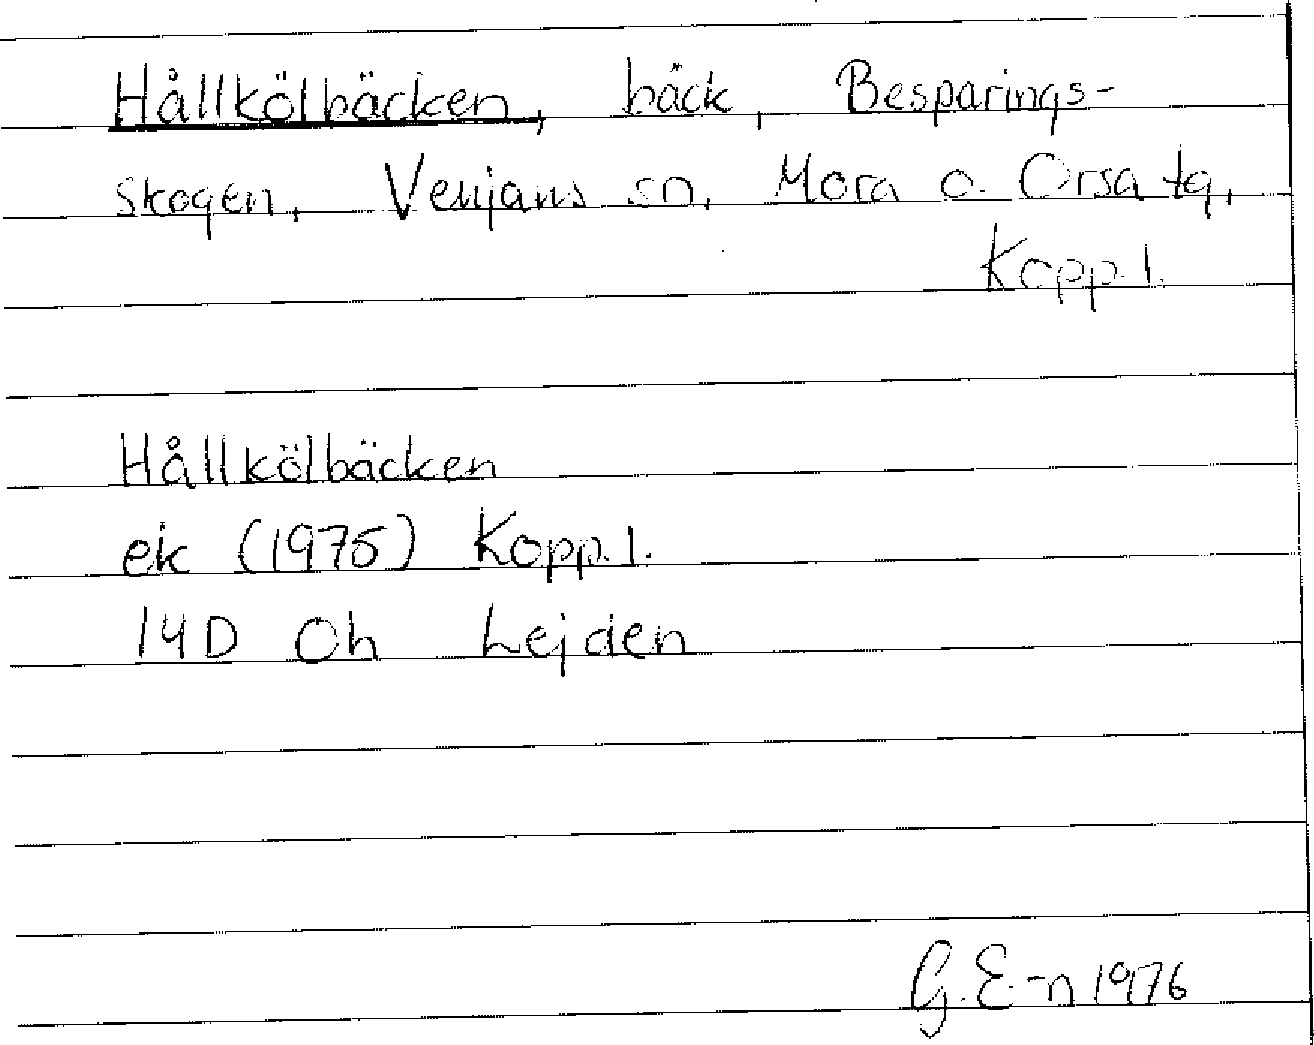 Hållkölbäcken, bäck, Besparings-
skogen, Venjans sn, Mora o. Orsa tg,
Kopp. l.
Hållkölbäcken
ek (1975) Kopp. l.
14D 0h Lejden
G. E-n 1976